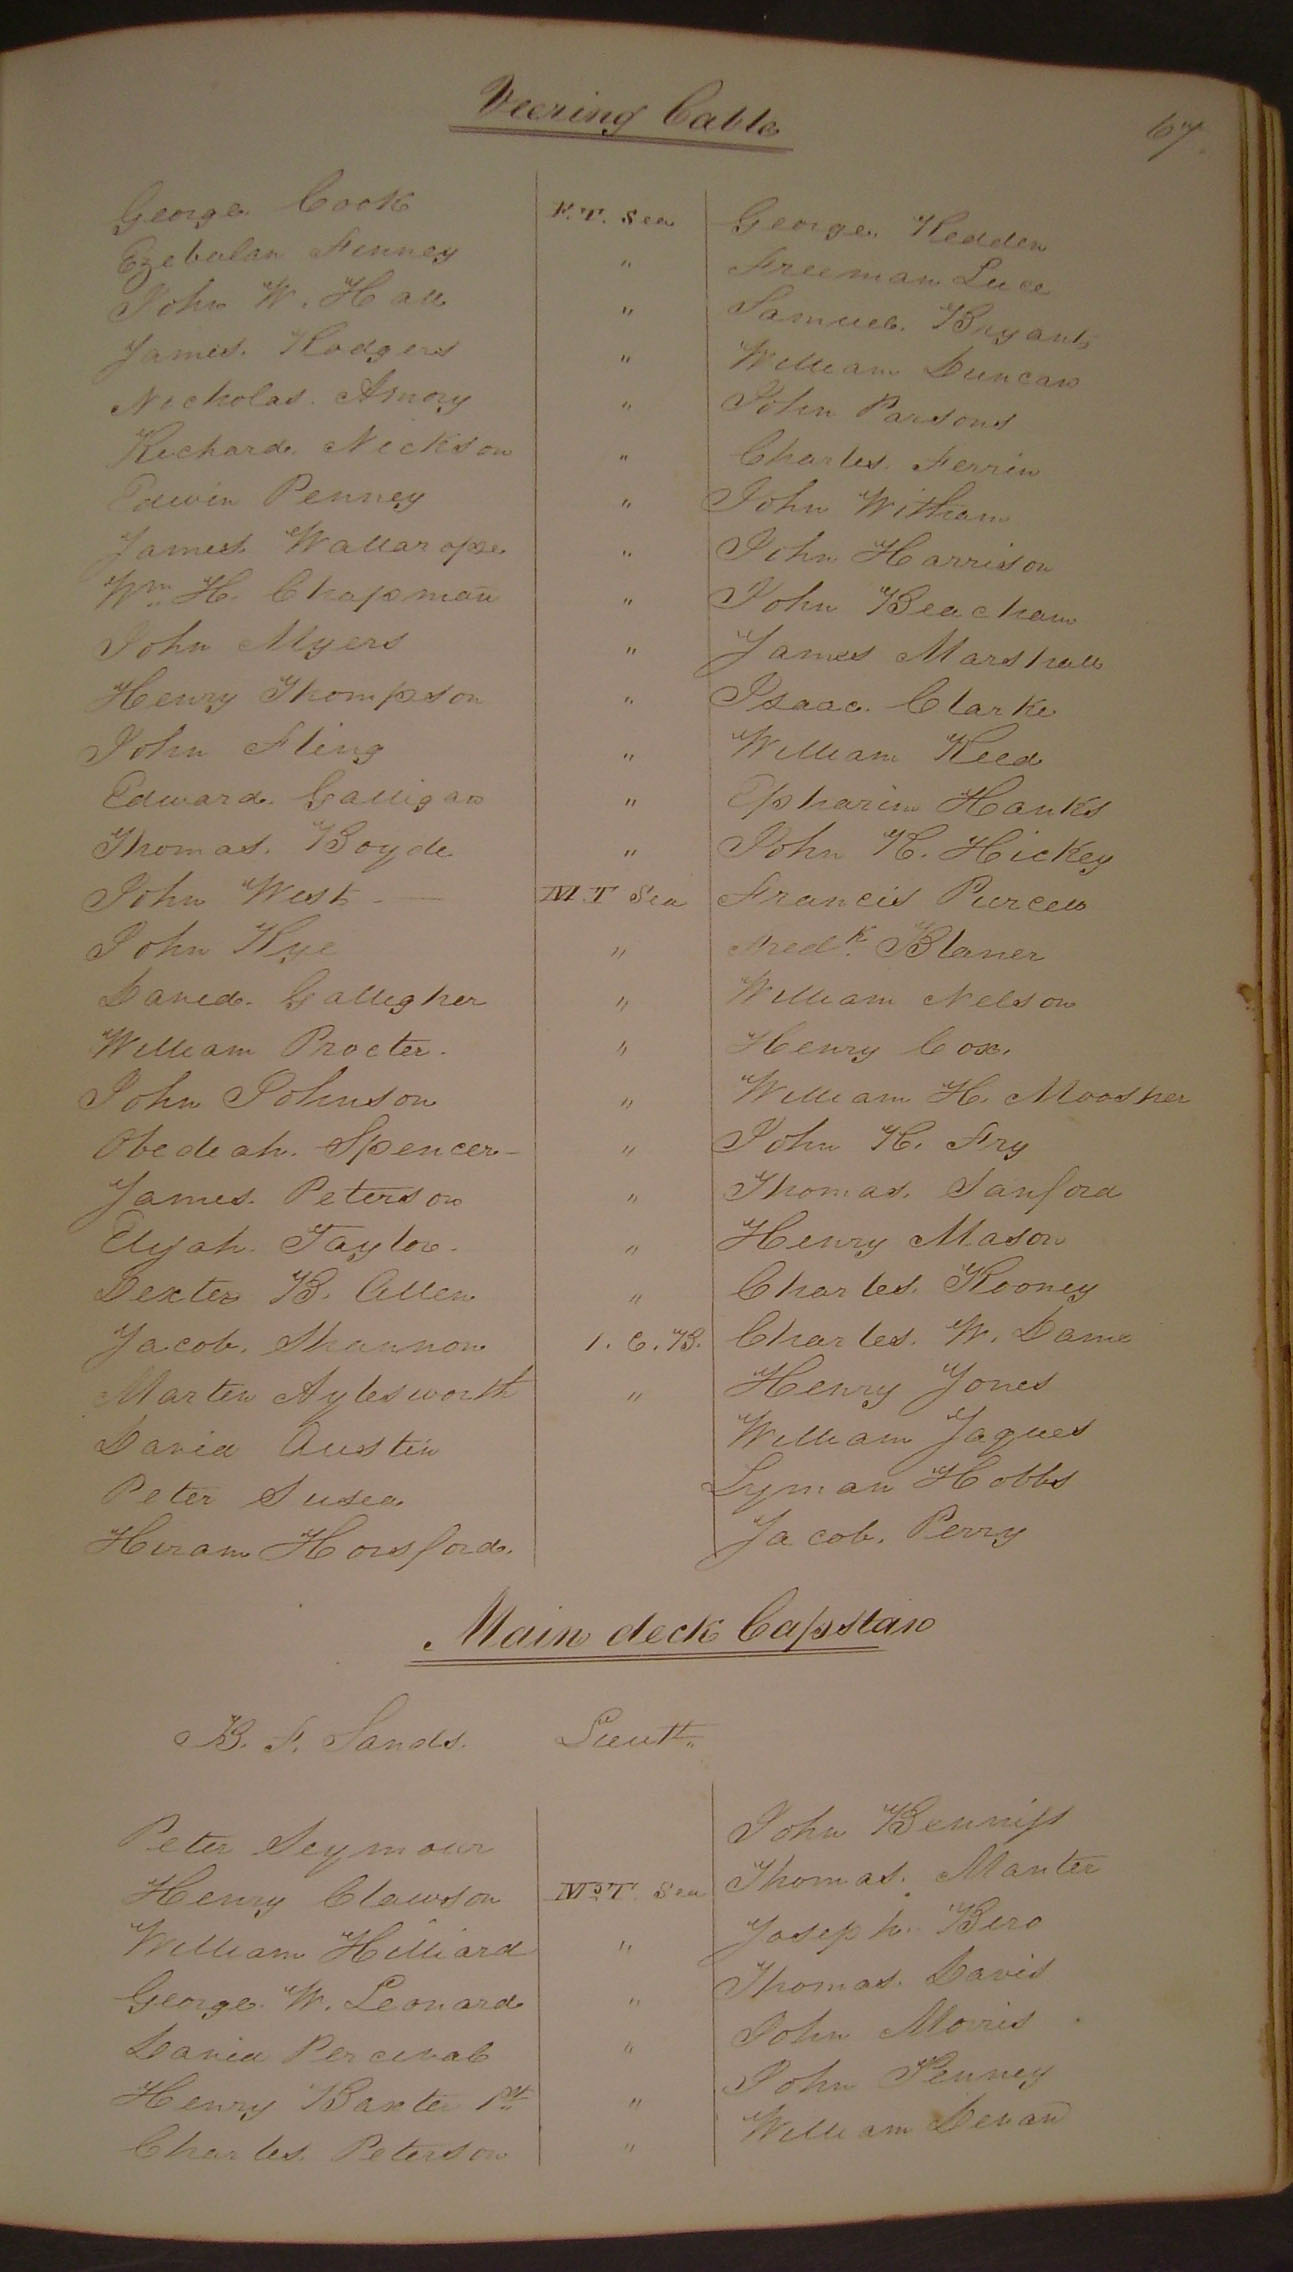 Veering Cable
67
George Cook F.T. Sea George Hedden
Ezebulan Finney " Freeman Luce
John W. Hall " Samuel Bryant
James Rodgers " William Duncan
Nicholas Amory " John Parsons
Richard Nickson " Charles Ferrin
Edwin Penney " John Witham
James Wallar " John Harrison
Wm. H. Chapman " John Beacham
John Myers " James Marshall
Henry Thompson " Isaac Clarke
John Fling " William Reed
Edward Galligan " Epharim Hanks
Thomas Boyde " John R. Hickey
John West — M.T Sea Francis Purcell
John Rye " Fredk. Blaner
David Gallegher " William Nelson
William Procter " Henry Cox.
John Johnson " William H. Moosher
Obedeah Spencer - " John H. Fry
James Peterson " Thomas Sanford
Elijah Taylor " Henry Mason
Dexter B. Allen " Charles Rooney
Jacob Shannon 1. C. B. Charles W. Dame
Marten Aylesworth " Henry Jones
David Austin William Jaques
Peter Susea Lyman Hobbs
Hiram Horsford Jacob Perry
Main deck Capstan
B. F. Sands. Lieutt.
Peter Seymour John Benniss
Henry Clawson M.T. Sea Thomas Manter
William Hilliard " Joseph Biro
George W. Leonard " Thomas Davis
David Percival " John Morris
Henry Baxter 1st " John Penney
Charles Peterson " William Devan